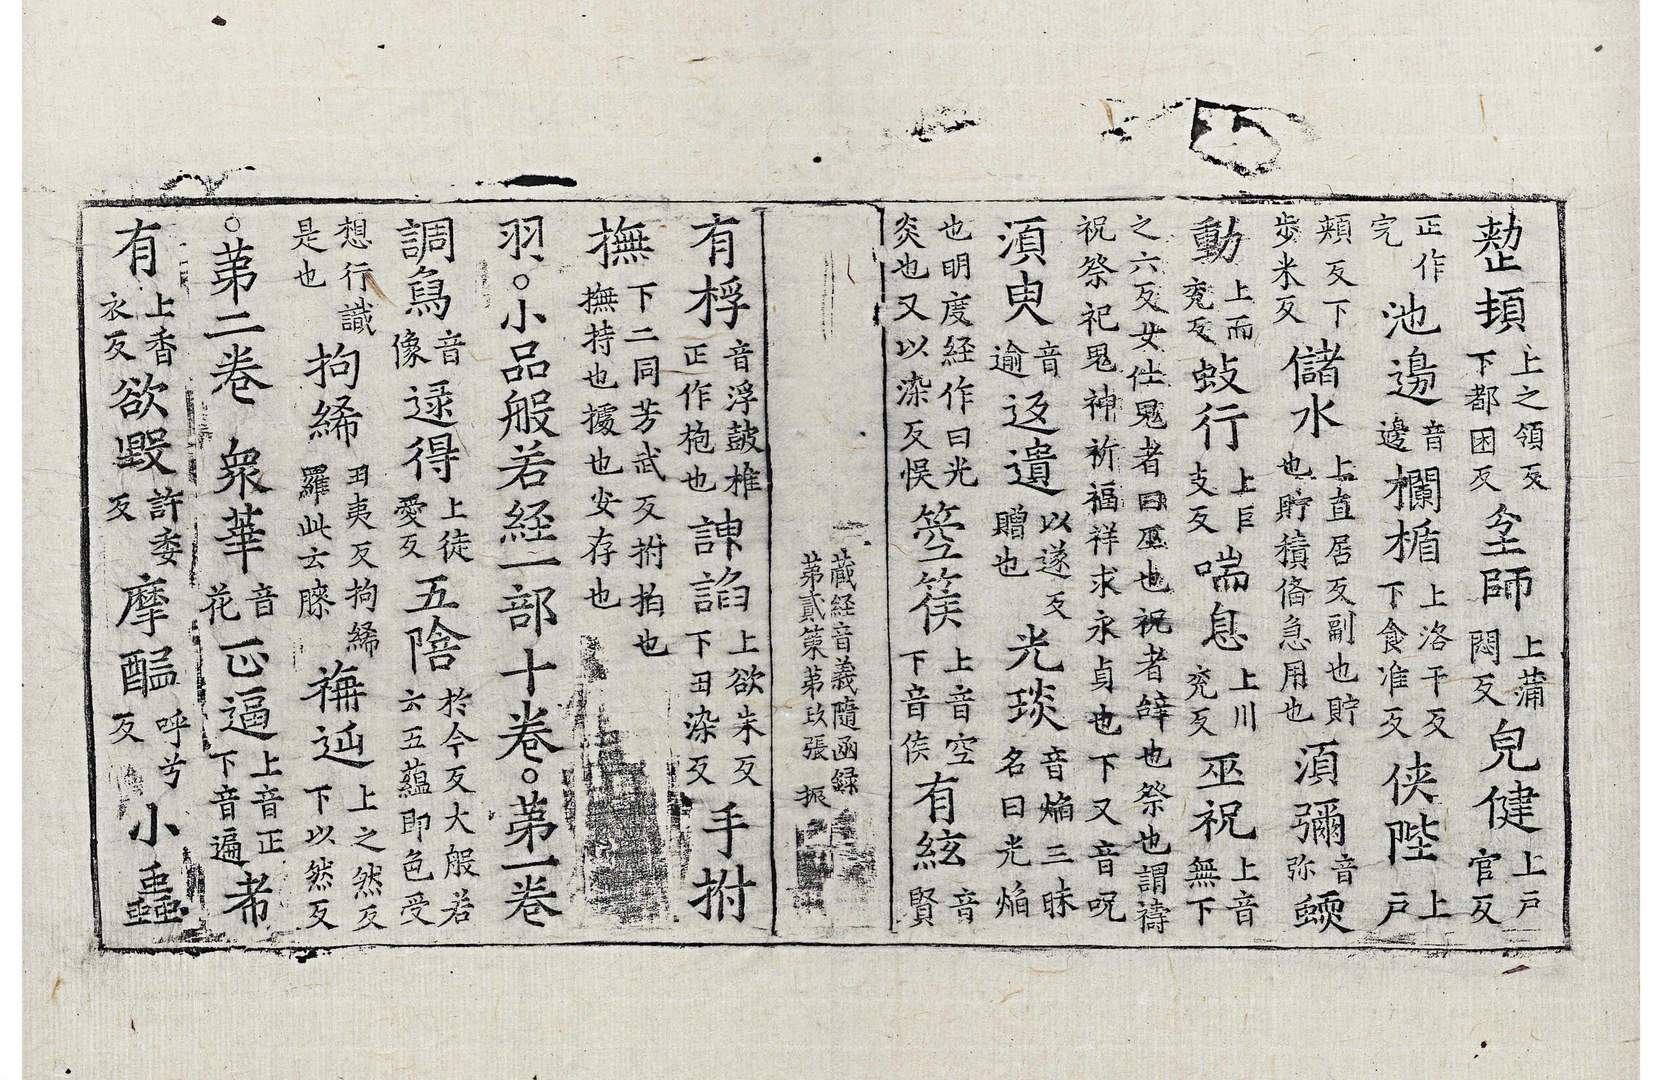 整頓上之領反下都困反坌師上蒲悶反皃健上戶官反
正作完池邊音邊欄楯上洛干反下食准反侠陛上戶
頰反下步米反儲水上直居反副也貯也貯積俻急用也須彌音弥蝡
動上而兖反蚑行上巨支反喘息上川兖反巫祝上音無下
之六反女仕鬼者曰巫也祝者辝也祭也謂禱祝祭祀鬼神祈福祥求永貞也下又音呪
須臾音逾返遺以遂反贈也光琰音焰三昧名曰光焰
也明度経作曰光炎也又以染反悮箜篌上音空下音侯有絃音賢
藏経音義隨函録
第貳策第玖張 振
有桴音浮鼓椎正作枹也諛諂上欲朱反下丑染反手拊
撫下二同芳武反拊拍也撫持也據也安存也
羽。小品般若経一部十卷。第一卷
調爲音像逯得上徒愛反五陰於今反大般若云五藴即色受
想行識是也拘絺丑夷反拘絺羅此云膝旃延上之然反下以然反
。第二卷 衆華音花正逼上音正下音遍希
有上香衣反欲毀許委反摩醯呼兮反小蟲